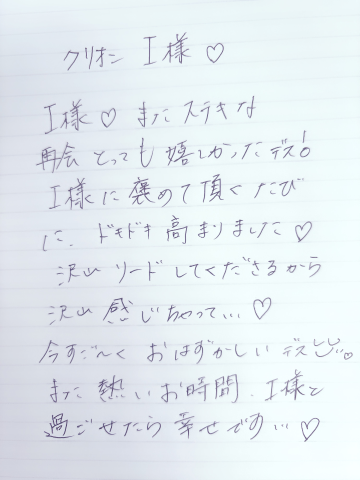 クリオン I様♡
I様♡ またステキな
再会 とっても 嬉しかったデス!
I様に褒めて頂くたび
に、ドキドキ高まりました♡
沢山 リードしてくださるから
沢山 感じちゃって...♡
今すご〜く おはずかしいデス
また 熱いお時間、I様と
過ごせたら 幸せです...♡